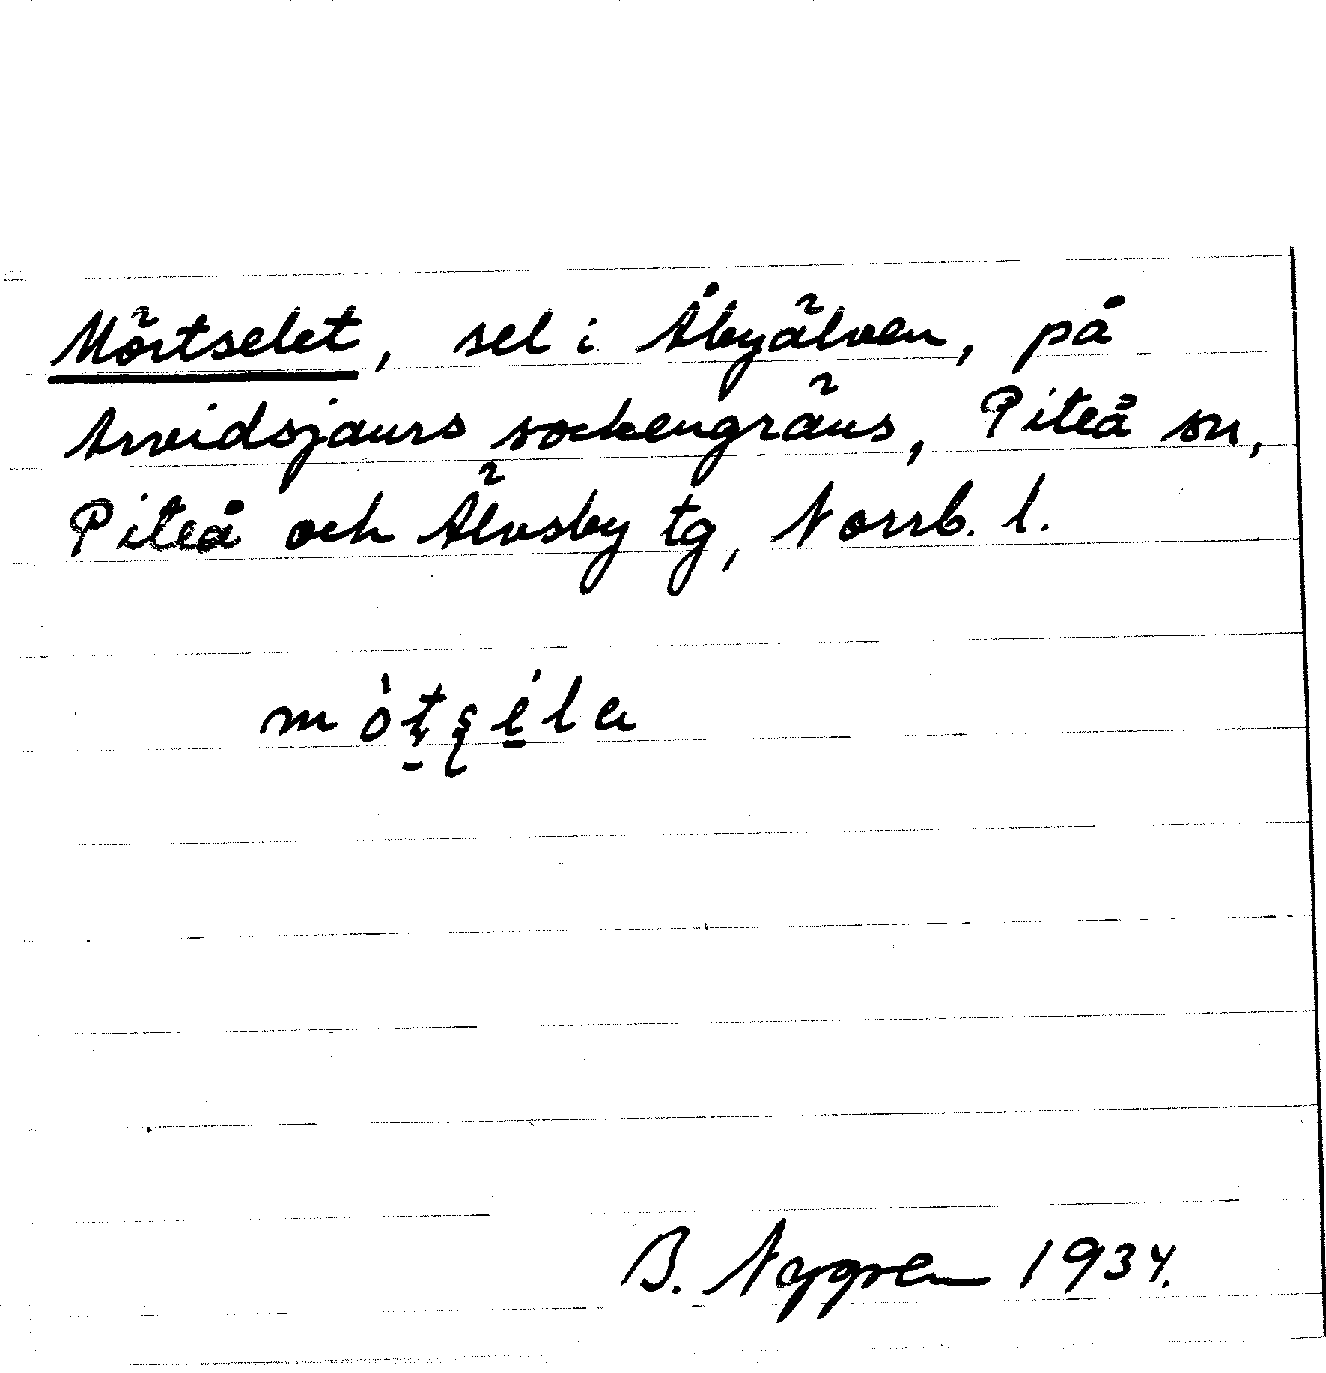 Mörtselet, sel i Åbyälven, på
Arvidsjaurs sockengräns, Piteå sn,
Piteå och Älvsby tg, Norrb. l.
B. Nygren 1934.